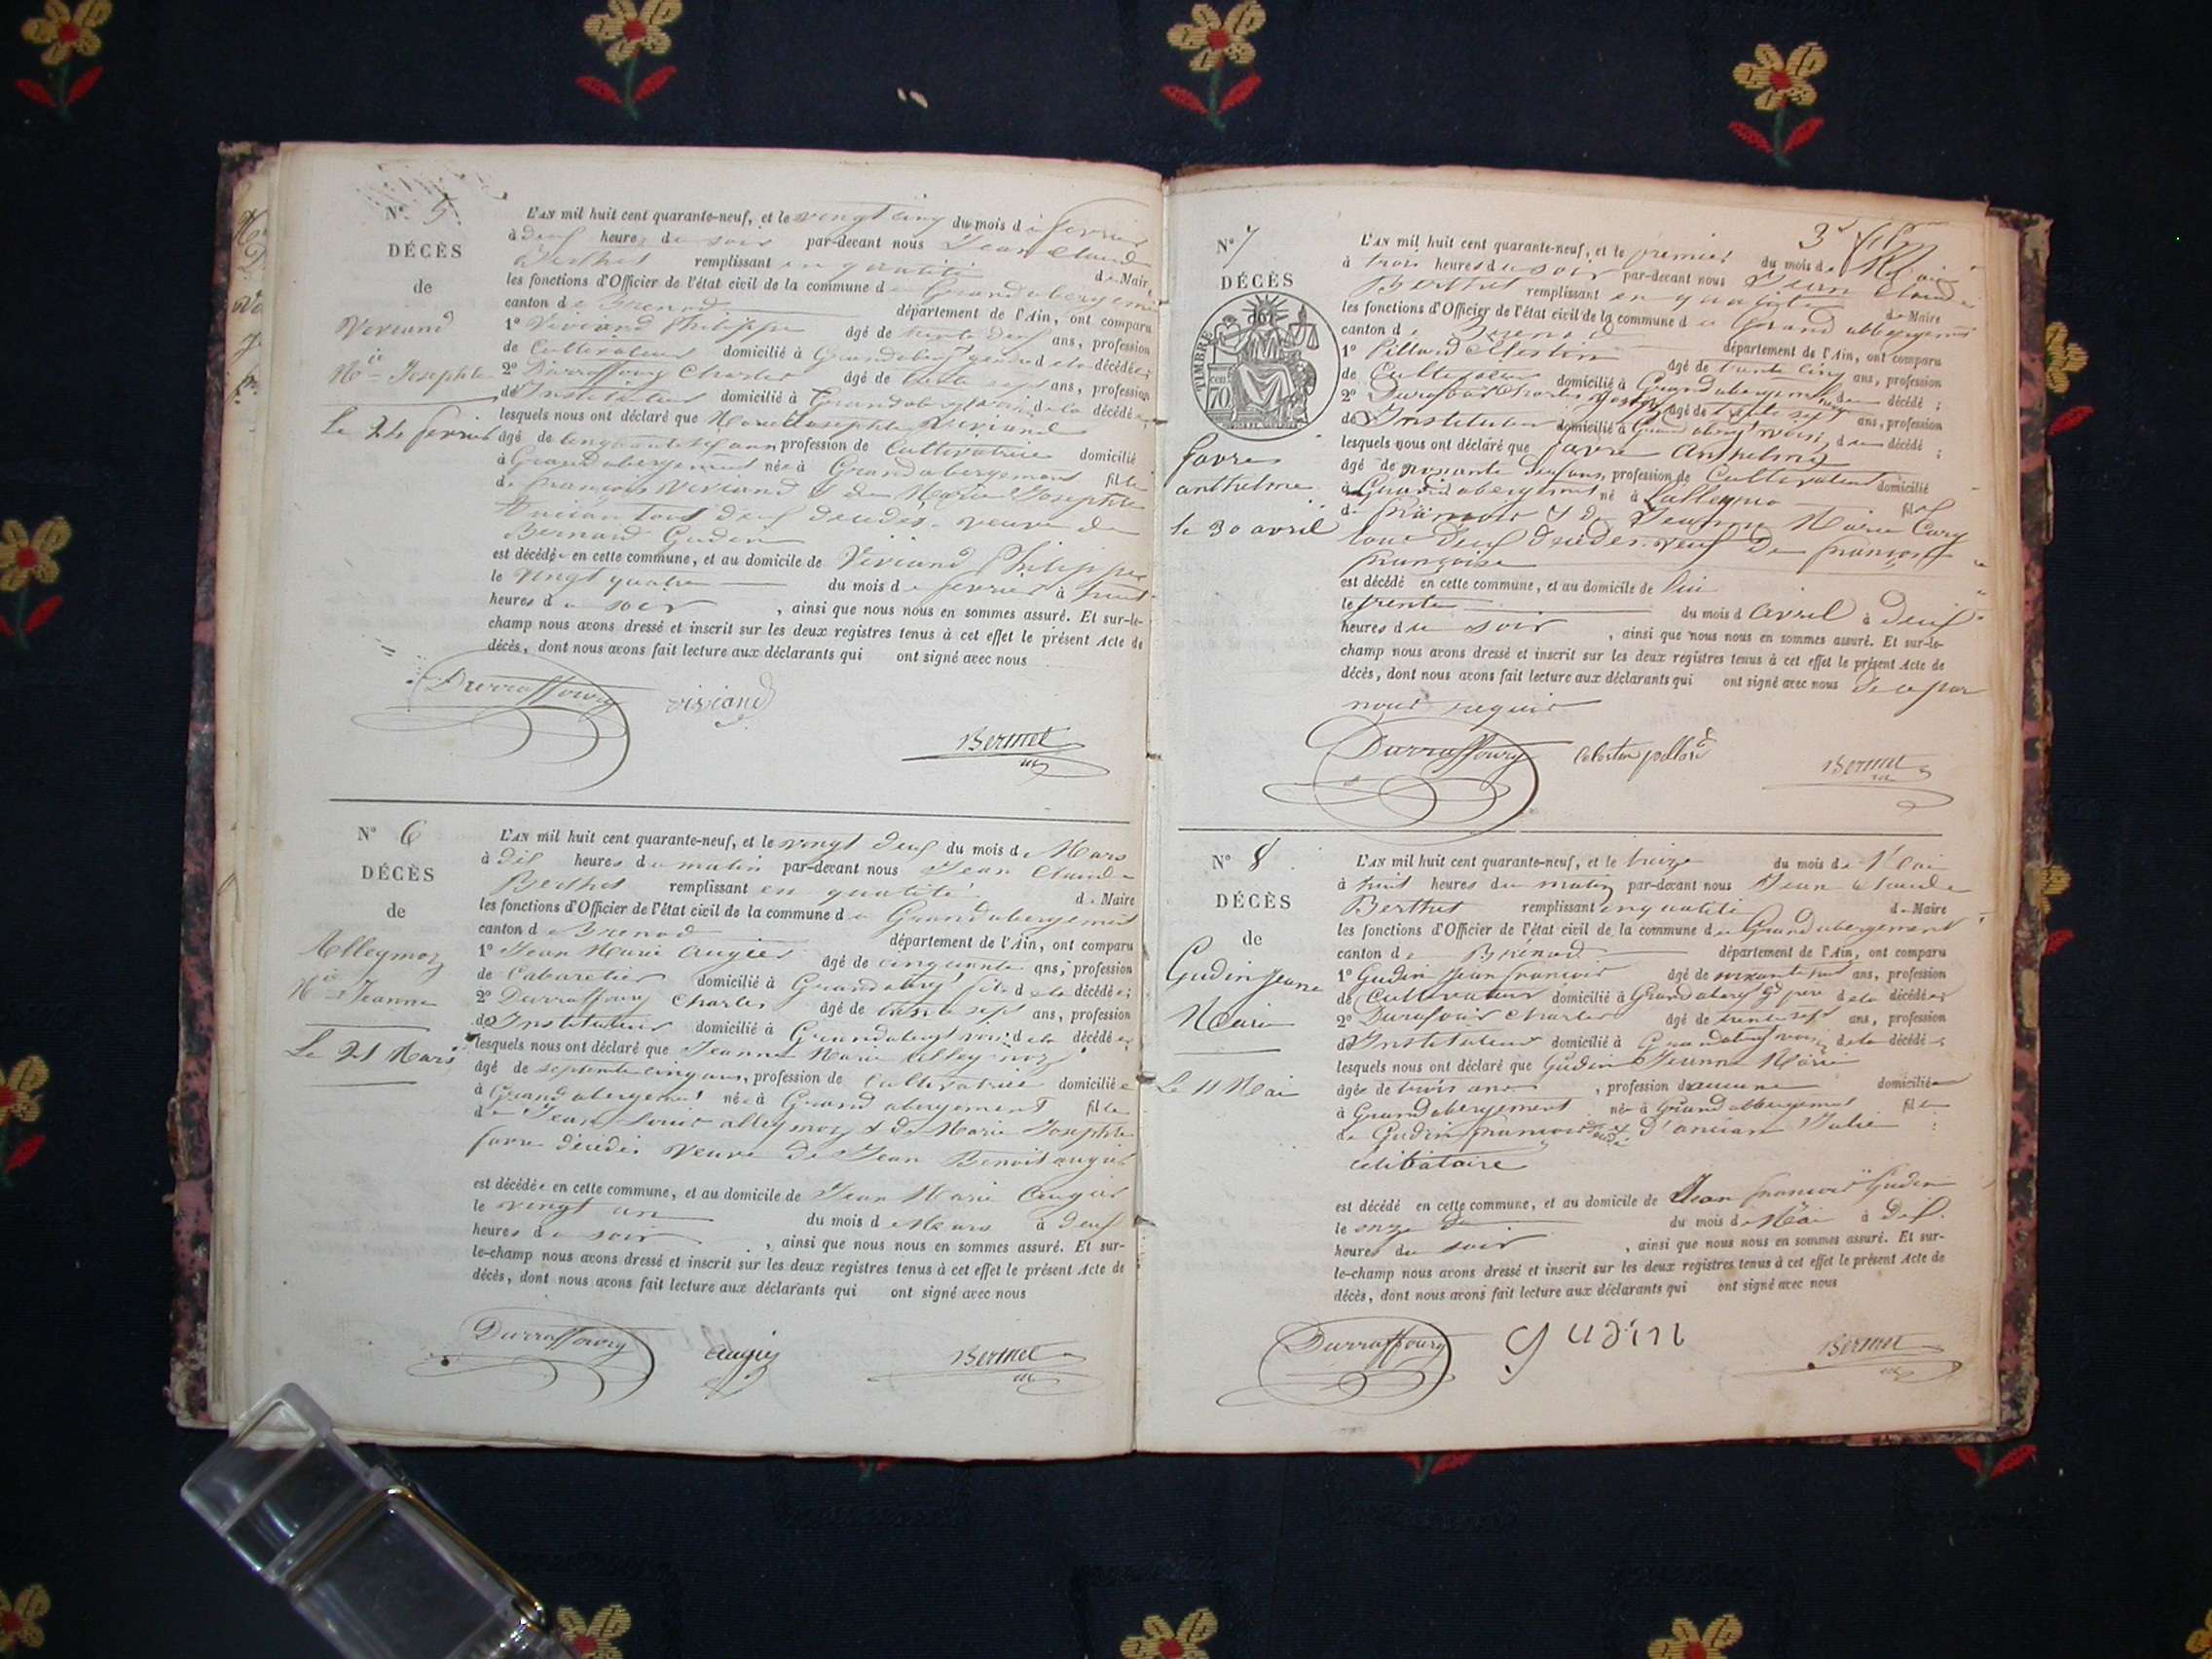 N° 5.
DÉCÈS
de
Viviand
Mie Josephte
Le 24 fevrier
L'AN mil huit cent quarante-neuf, et le vingt cinq du mois de fevrier
à deux heures du soir par-devant nous Jean Claude
Berthet remplissant en qualité de Maire
les fonctions d'Officier de l'état civil de la commune de Grandabergement
canton de Brenod département de l'Ain, ont comparu
1° Viviand Philippe âgé de trente deux ans, profession
de Cultivateur domicilié à Grandabergt de la décédée;
2° Durraffourg Charles âgé de trente sept ans, profession
de Instituteur domicilié à Grandabergt de la décédée;
lesquels nous ont déclaré que Marie Josephte Viviand
âgé de ans, profession de Cultivatrice domicilié
à Grandabergement née à Grandabergement fille
de françois Viviand & de Marie Josephte
Ancian tous deux décédés. veuve de
Bernard Gudin
est décédée en cette commune, et au domicile de Viviand Philippe
le vingt quatre du mois de fevrier à huit
heures du soir, ainsi que nous nous en sommes assuré. Et sur-le-
champ nous avons dressé et inscrit sur les deux registres tenus à cet effet le présent Acte de
décès, dont nous avons fait lecture aux déclarants qui ont signé avec nous
Durraffourg viviand
Berthet
N° 6
DÉCÈS
de
Alleymoz
Mie Jeanne
Le 21 Mars
L'AN mil huit cent quarante-neuf, et le vingt deux du mois de Mars
à dix heures du matin par-devant nous Jean Claude
Berthet remplissant en qualité de Maire
les fonctions d'Officier de l'état civil de la commune de Grandabergement
canton de Brenod département de l'Ain, ont comparu
1° Jean Marie Augier âgé de cinquante ans, profession
de Cabaretier domicilié à Grandabergt fils de la décédée;
2° Durraffourg Charles âgé de trente sept ans, profession
de Instituteur domicilié à Grandabergt voisin de la décédée;
lesquels nous ont déclaré que Jeanne Marie Alleymoz
âgé de septente cinq ans, profession de Cultivatrice domiciliée
à Grandabergement née à Grandabergement fille
de Jean Louis alleymoz & de Marie Josephte
favre décédés Veuve de Jean Benoit augier
est décédée en cette commune, et au domicile de Jean Marie Augier
le vingt un du mois de Mars à deux
heures du soir, ainsi que nous nous en sommes assuré. Et sur-
le-champ nous avons dressé et inscrit sur les deux registres tenus à cet effet le présent Acte de
décès, dont nous avons fait lecture aux déclarants qui ont signé avec nous
Durraffourg augier Berthet
3e
N° 7
DÉCÈS
TIMBRE
70
favre
anthelme
le 30 avril
L'AN mil huit cent quarante-neuf, et le premier du mois de Mai
à trois heures du soir par-devant nous Jean Claude
Berthet remplissant en qualité de Maire
les fonctions d'Officier de l'état civil de la commune de Grand abbergement
canton de Brenod département de l'Ain, ont comparu
1° Pillard Celestin âgé de trente cinq ans, profession
de Cultivateur domicilié à Grandabergement du décédé;
2° Durafour Charles âgé de trente sept ans, profession
de Instituteur domicilié à Grandabergt voisin du décédé;
lesquels nous ont déclaré que favre Anthelme
âgé de soixante deux ans, profession de Cultivateur domicilié
à Grandabergement né à Lalleyriat fils
de françois & de Jeanne Marie Cary
tous deux décédés. veuf de françoise
est décédé en cette commune, et au domicile de lui
le trente du mois d'avril à deux
heures du soir, ainsi que nous nous en sommes assuré. Et sur-le-
champ nous avons dressé et inscrit sur les deux registres tenus à cet effet le présent Acte de
décès, dont nous avons fait lecture aux déclarants qui ont signé avec nous de ce par
nous requis
Durraffourg Celestin pillard Berthet
N° 8.
DÉCÈS
de
Gudin Jeane
Marie
Le 11 Mai
L'AN mil huit cent quarante-neuf, et le treize du mois de Mai
à huit heures du matin par-devant nous Jean Claude
Berthet remplissant en qualité de Maire
les fonctions d'Officier de l'état civil de la commune de Grandabergement
canton de Brénod département de l'Ain, ont comparu
1° Gudin Jean françois âgé de ans, profession
de Cultivateur domicilié à Grandabergt gd père de la décédée;
2° Durafour Charles âgé de trente sept ans, profession
de Instituteur domicilié à Grandabergt voisin de la décédé;
lesquels nous ont déclaré que Gudin Jeanne Marie
âgée de trois ans, profession d'aucune domiciliée
à Grandabergement née à Grand abbergement fille
de Gudin françois décédé & D'ancian Julie
celibataire
est décédé en cette commune, et au domicile de Jean françois Gudin
le onze du mois de Mai à dix
heures du soir, ainsi que nous nous en sommes assuré. Et sur-
le-champ nous avons dressé et inscrit sur les deux registres tenus à cet effet le présent Acte de
décès, dont nous avons fait lecture aux déclarants qui ont signé avec nous
Durraffourg gudin Berthet